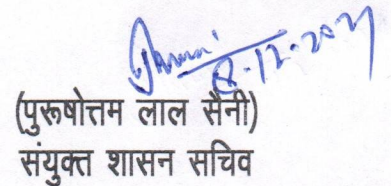 8-12-2021
(पुरूषोत्तम लाल सैनी)
संयुक्त शासन सचिव